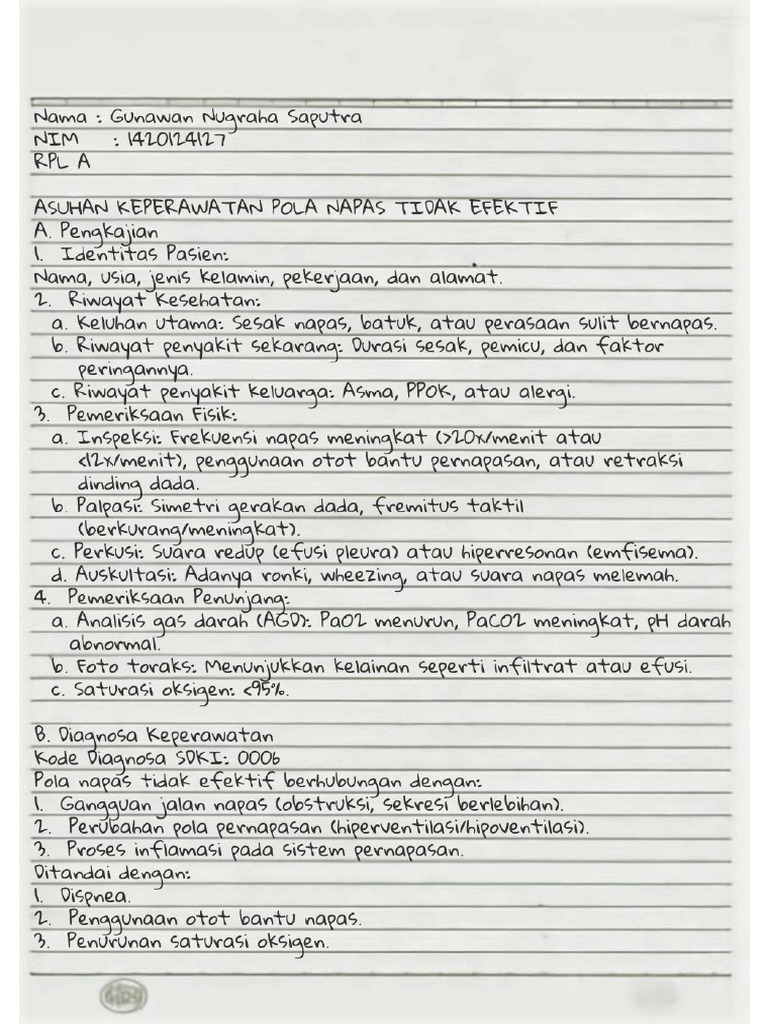 Nama : Gunawan Nugraha Saputra
NIM : 1420124127
RPL A
ASUHAN KEPERAWATAN POLA NAPAS TIDAK EFEKTIF
A. Pengkajian
1. Identitas Pasien:
Nama, usia, jenis kelamin, pekerjaan, dan alamat.
2. Riwayat Kesehatan:
a. Keluhan utama: Sesak napas, batuk, atau perasaan sulit bernapas.
b. Riwayat penyakit sekarang: Durasi sesak, pemicu, dan faktor
peringannya.
c. Riwayat penyakit keluarga: Asma, PPOK, atau alergi.
3. Pemeriksaan Fisik:
a. Inspeksi: Frekuensi napas meningkat (>20x/menit atau
<12x/menit), penggunaan otot bantu pernapasan, atau retraksi
dinding dada.
b. Palpasi: Simetri gerakan dada, fremitus taktil
(berkurang/meningkat).
c. Perkusi: Suara redup (efusi pleura) atau hiperresonan (emfisema).
d. Auskultasi: Adanya ronki, wheezing, atau suara napas melemah.
4. Pemeriksaan Penunjang:
a. Analisis gas darah (AGD): PaO2 menurun, PaCO2 meningkat, pH darah
abnormal.
b. Foto toraks: Menunjukkan kelainan seperti infiltrat atau efusi.
c. Saturasi oksigen: <95%.
B. Diagnosa Keperawatan
Kode Diagnosa SDKI: 0006
Pola napas tidak efektif berhubungan dengan:
1. Gangguan jalan napas (obstruksi, sekresi berlebihan).
2. Perubahan pola pernapasan (hiperventilasi/hipoventilasi).
3. Proses inflamasi pada sistem pernapasan.
Ditandai dengan:
1. Dispnea.
2. Penggunaan otot bantu napas.
3. Penurunan saturasi oksigen.